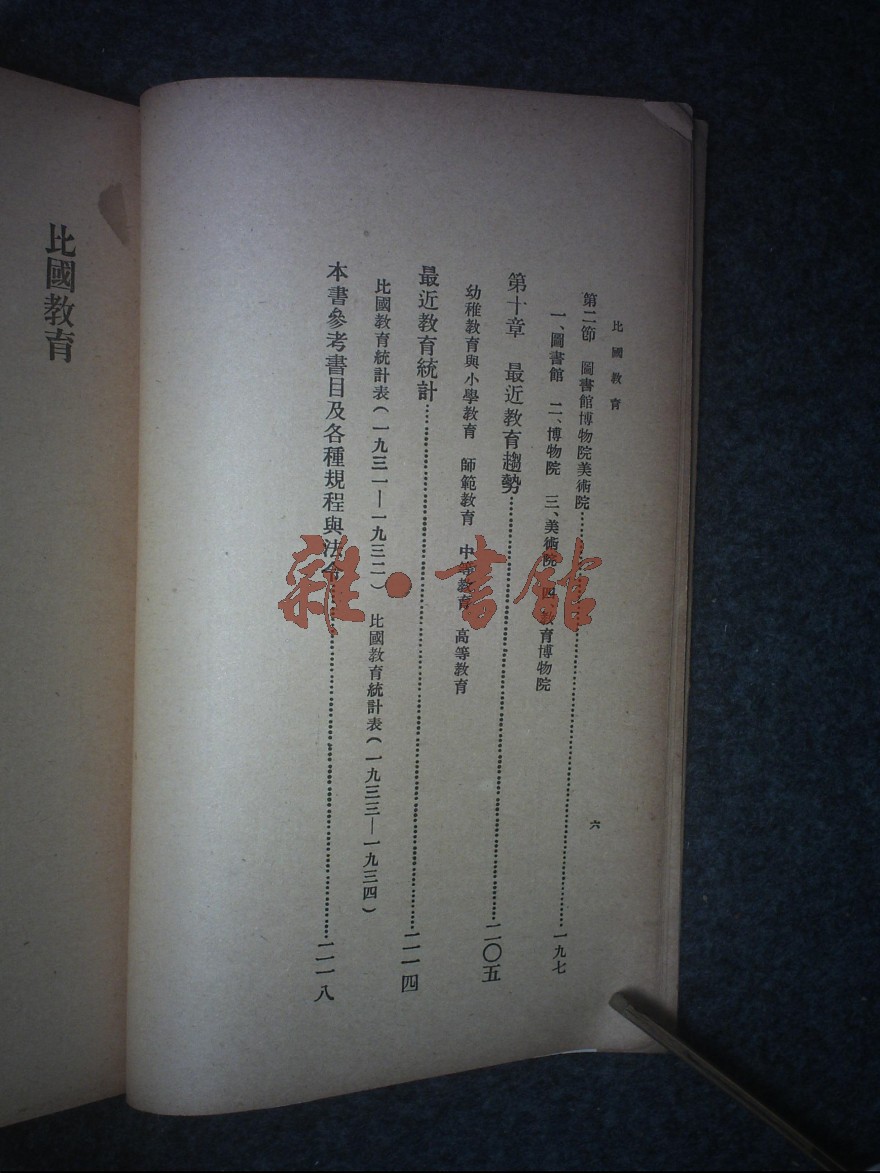 比國教育
六
第二節 圖書館博物院美術院……一九七
一、圖書館 二、博物院 三、美術院 四、教育博物院
第十章 最近教育趨勢……二〇五
幼稚教育與小學教育 師範教育 中等教育 高等教育
最近教育統計……二一四
比國教育統計表(一九三一—一九三二) 比國教育統計表(一九三三—一九三四)
本書參考書目及各種規程與法令……二一八
比國教育
雜·書館